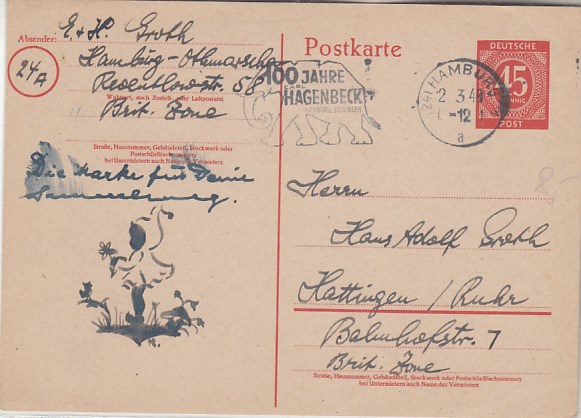 Absender: E. + H. Groth
Hamburg-Othmarschen
24a
Reventlowstr. 5
Wohnort, auch Zustell- oder Leitpostamt
Brit. Zone
Straße, Hausnummer, Gebäudeteil, Stockwerk oder
Postschließfachnummer;
bei Untermietern auch Name des Vermieters
Die Marke für Deine
Sammelung.
Postkarte
100 JAHRE
CARL
HAGENBECK
HAMBURG STELLINGEN
(24) HAMBURG
2 3.48
-12
a
DEUTSCHE
45
PFENNIG
POST
8,-
Herrn
Hans Adolf Groth
Hattingen / Ruhr
Bahnhofstr. 7
Brit. Zone
Straße, Hausnummer, Gebäudeteil, Stockwerk oder Postschließfachnummer;
bei Untermietern auch Name des Vermieters